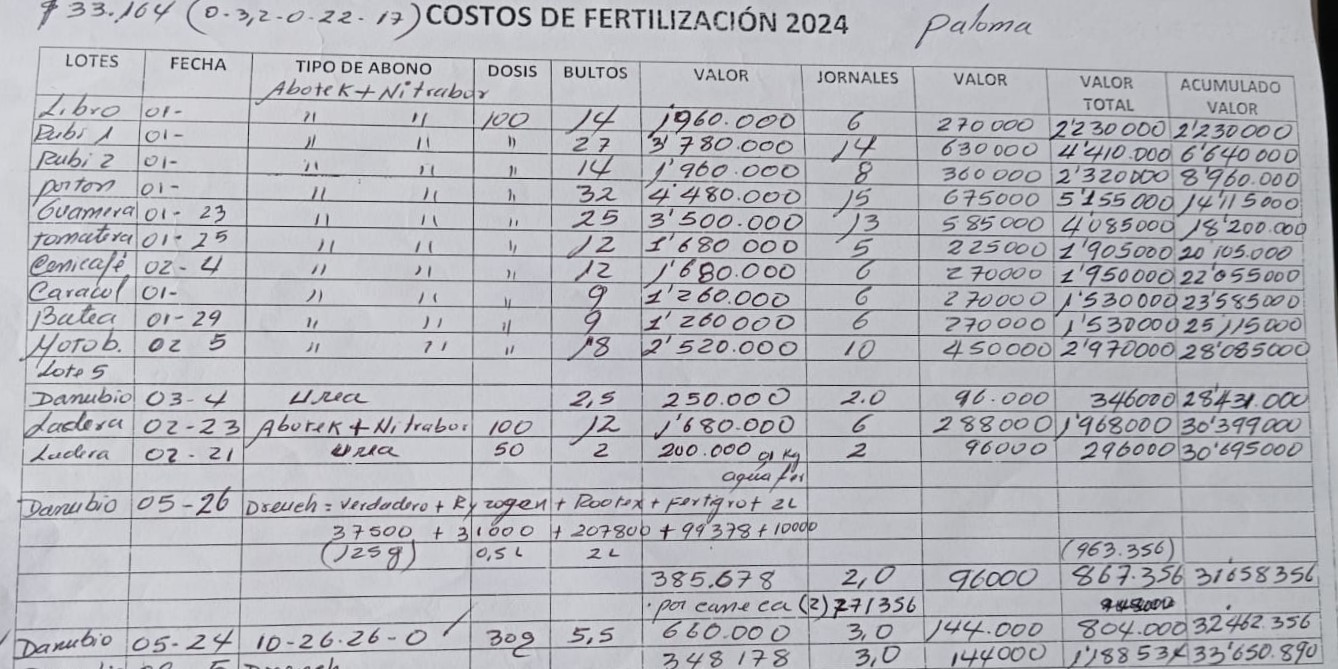 $ 33.164 (0-3,2-0-22-17) COSTOS DE FERTILIZACIÓN 2024 Paloma
LOTES FECHA TIPO DE ABONO DOSIS BULTOS VALOR JORNALES VALOR VALOR TOTAL ACUMULADO VALOR
Abotek + Nitrabor
Libro 01- " " 100 14 1'960.000 6 270000 2'230000 2'230000
Rubi 1 01- " " " 27 3'780.000 14 630000 4'410.000 6'640000
Rubi 2 01- " " " 14 1'960.000 8 360000 2'320000 8'960.000
porton 01- " " " 32 4'480.000 15 675000 5'155000 14'115000
Guamera 01-23 " " " 25 3'500.000 13 585000 4'085000 18'200.000
tomatera 01-25 " " " 12 1'680 000 5 225000 1'905000 20'105.000
Cenicafé 02-4 " " " 12 1'680.000 6 270000 1'950000 22'055000
Caracol 01- " " " 9 1'260.000 6 270000 1'530000 23'585000
Batea 01-29 " " " 9 1'260000 6 270000 1'530000 25'115000
Motob. 02 5 " " " 18 2'520.000 10 450000 2'970000 28'085000
Lote 5
Danubio 03-4 Urea 2,5 250.000 2.0 96.000 346000 28'431.000
Ladera 02-23 Abotek + Nitrabor 100 12 1'680.000 6 288000 1'968000 30'399000
Ladera 02-21 urea 50 2 200.000 2 96000 296000 30'695000
Danubio 05-26 Drench = verdadero + Ryzogen + Rootex + Fertigro + 2L
37500 + 31000 + 207800 + 99378 + 10000
(125g) 0,5L 2L (963.356)
385.678 2,0 96000 867.356 31658356
por caneca (2) 771356
Danubio 05-24 10-26-26-0 30g 5,5 660.000 3,0 144.000 804.000 32'462.356
348178 3,0 144000 33'650.890